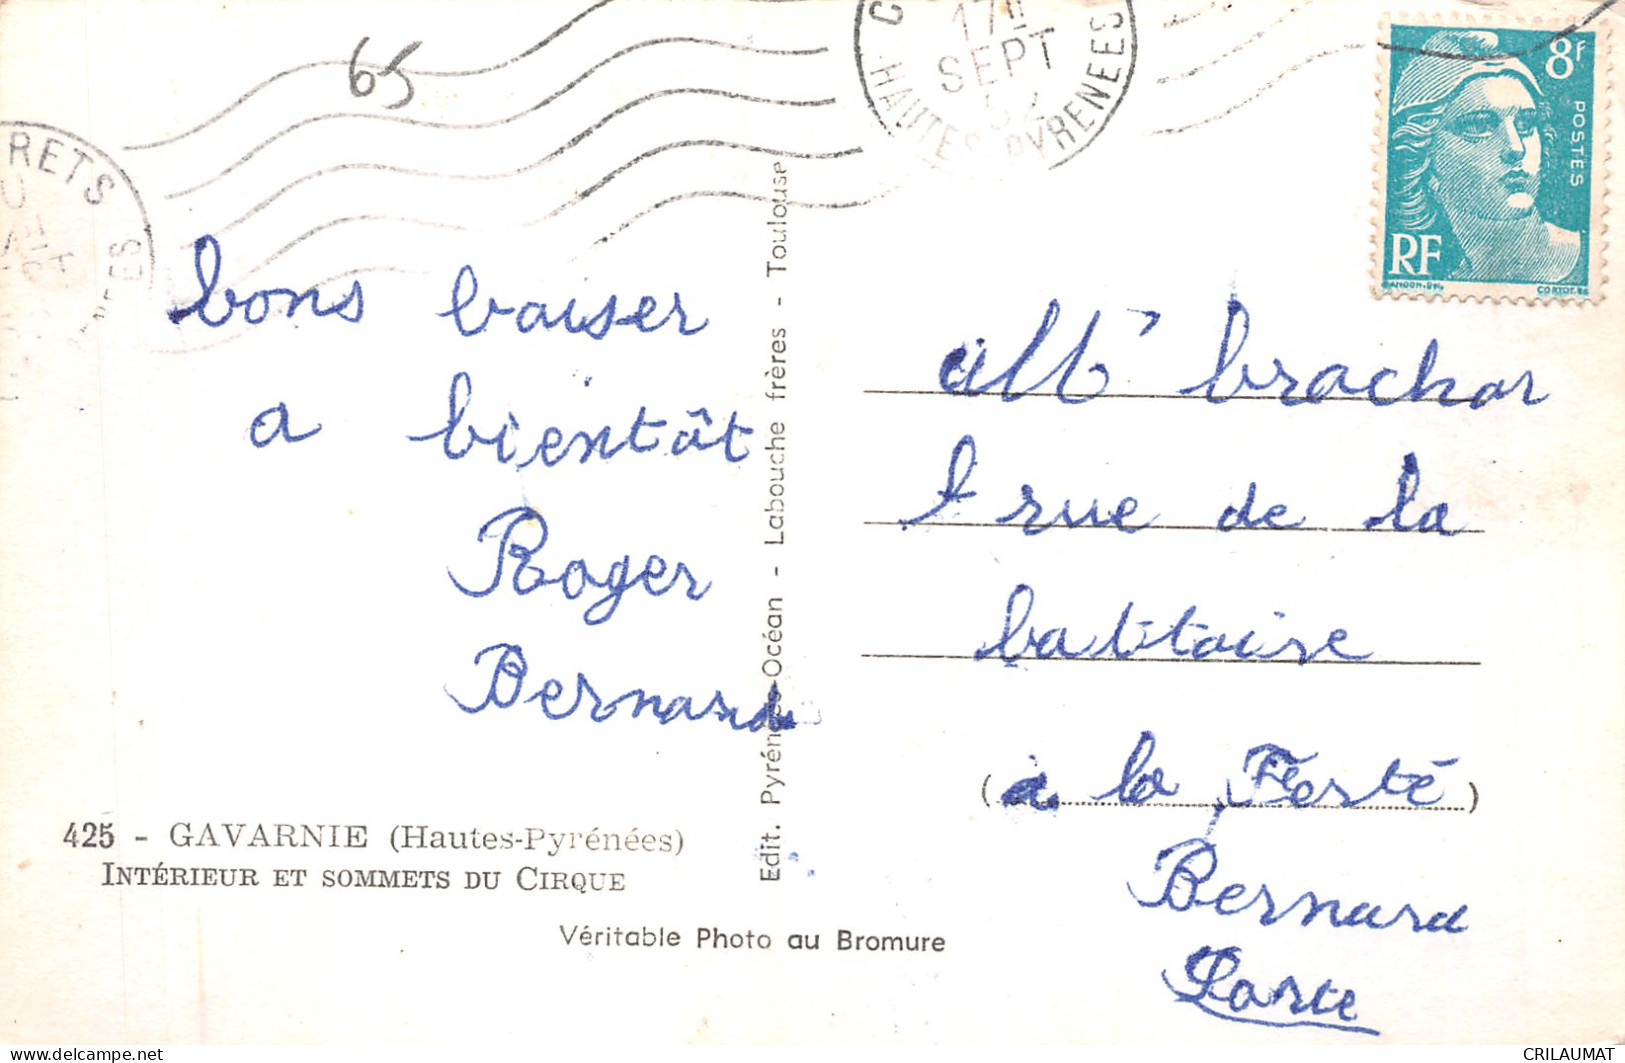 65
17H
SEPT
52
HAUTES PYRENEES
RETS
8F
POSTES
RF
GANDON.DEL
CORTOT.SC
bons baiser
a bientôt
Roger
Bernard
brachar
rue de la
battoire
a la Ferté
Bernard
Sarte
Edit. Pyrénées-Océan - Labouche frères - Toulouse
425 - GAVARNIE (Hautes-Pyrénées)
INTÉRIEUR ET SOMMETS DU CIRQUE
Véritable Photo au Bromure
delcampe.net
CRILAUMAT